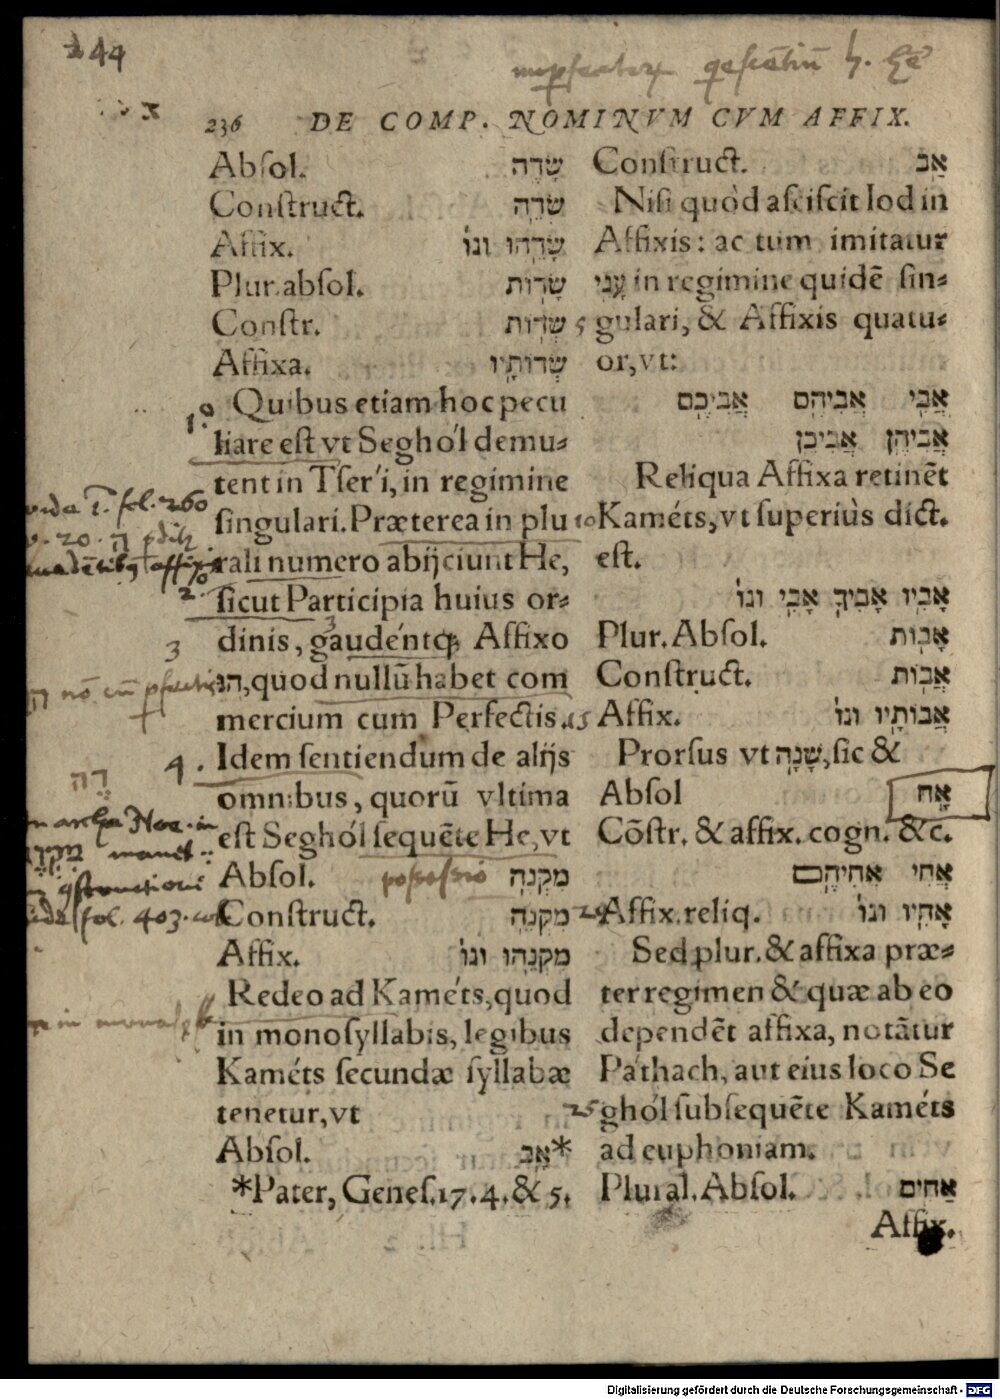 244
236 DE COMP. NOMINVM CVM AFFIX.
Absol. שָׂדֶה
Construct. שְׂדֵה
Affix. שָׂדֵהוּ וגו
Plur. absol. שָׂדוֹת
Constr. שְׂדוֹת
Affixa. שְׂדוֹתָיו
Quibus etiam hoc pecu
liare est vt Seghól demu⸗
tent in Tseri, in regimine
singulari. Præterea in plu
rali numero abijciunt He,
sicut Participia huius or⸗
dinis, gaudéntq; Affixo
הוּ, quod nullū habet com
mercium cum Perfectis.
Idem sentiendum de alijs
omnibus, quorū vltima
est Seghól sequēte He, vt
Absol. possessio מִקְנֶה
Construct. מִקְנֵה
Affix. מִקְנֵהוּ וגו
Redeo ad Kaméts, quod
in monosyllabis, legibus
Kaméts secundæ syllabæ
tenetur, vt
Absol. אָב*
*Pater, Genes. 17. 4. & 5.
Construct. אַב
Nisi quòd asciscit Iod in
Affixis: ac tum imitatur
עֳנִי in regimine quidē sin⸗
5 gulari, & Affixis quatu⸗
or, vt:
אֲבִי אֲבִיהֶם אֲבִיכֶם
אֲבִיהֶן אֲבִיכֶן
Reliqua Affixa retinēt
10 Kaméts, vt superiùs dict.
est.
אָבִיו אָבִיךָ אָבִי וגו
Plur. Absol. אָבוֹת
Construct. אֲבוֹת
15 Affix. אֲבוֹתָיו וגו
Prorsus vt שָׁנָה, sic &
Absol אָח
Cōstr. & affix. cogn. &c.
אֲחִי אֲחִיהֶם
20 Affix. reliq. אָחִיו וגו
Sed plur. & affixa præ⸗
ter regimen & quæ ab eo
dependēt affixa, notātur
Páthach, aut eius loco Se
25 ghól subsequēte Kaméts
ad euphoniam.
Plural. Absol. אַחִים
Affix.
1.
2.
3
4.
Digitalisierung gefördert durch die Deutsche Forschungsgemeinschaft - DFG